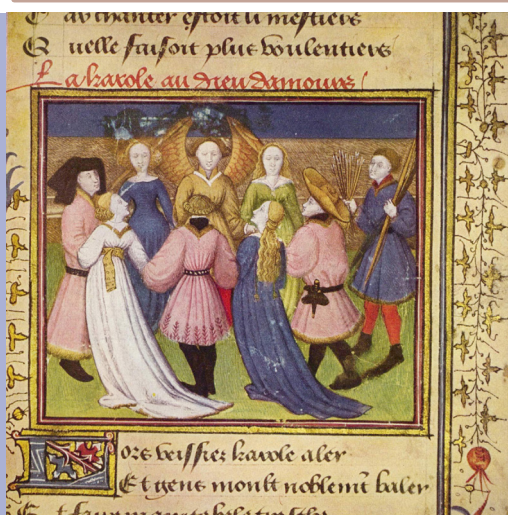 av chanter estoit li mestiers
Quelle faisoit plus voulentiers
La karole au dieu damours
Lors veissiez karole aler
Et gens moult noblemt baler
Et